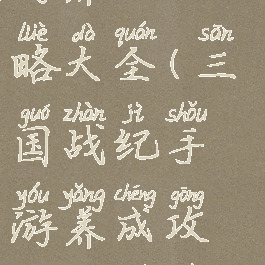 lüè dà quán sān
略大全(三
guó zhàn jì shǒu
国战纪手
yóu yǎng chéng gōng
游养成攻